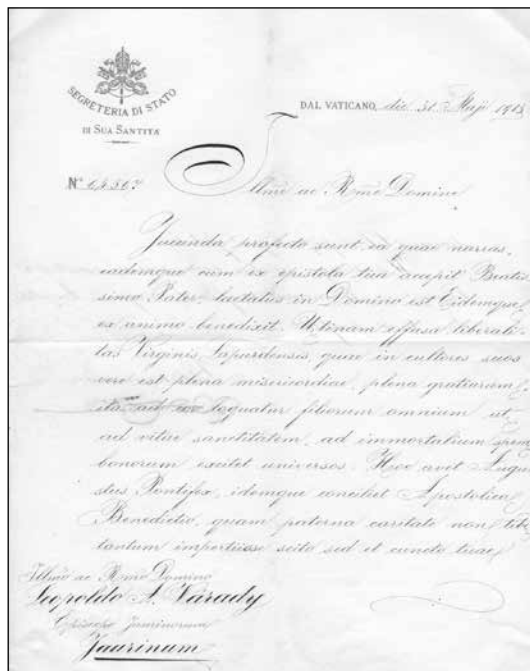 SEGRETERIA DI STATO
DI SUA SANTITÀ
DAL VATICANO, die 31. Maji 1913
Nº 64567
Illmẽ ac Rmẽ Domine
Jucunda profecto sunt ea quae narras,
eademque cum ex epistola tua accepit Beatis
simus Pater, laetatus in Domino est Eidemque
ex animo benedixit. Utinam effusa liberali
tas Virginis Lapurdensis, quae in cultores suos
vere est plena misericordiae, plena gratiarum
ita ad cor loquatur filiorum omnium ut
ad vitae sanctitatem, ad immortalium spem
bonorum excitet universos. Hoc avet Augu
stus Pontifex, idemque conciliet Apostolica
Benedictio, quam paterna caritate non tibi
tantum impertiisse scito sed et cuncto tuae
Illmõ ac Rmõ Domino
Leopoldo A. Várady
Episcopo Jaurinensi
Jaurinum